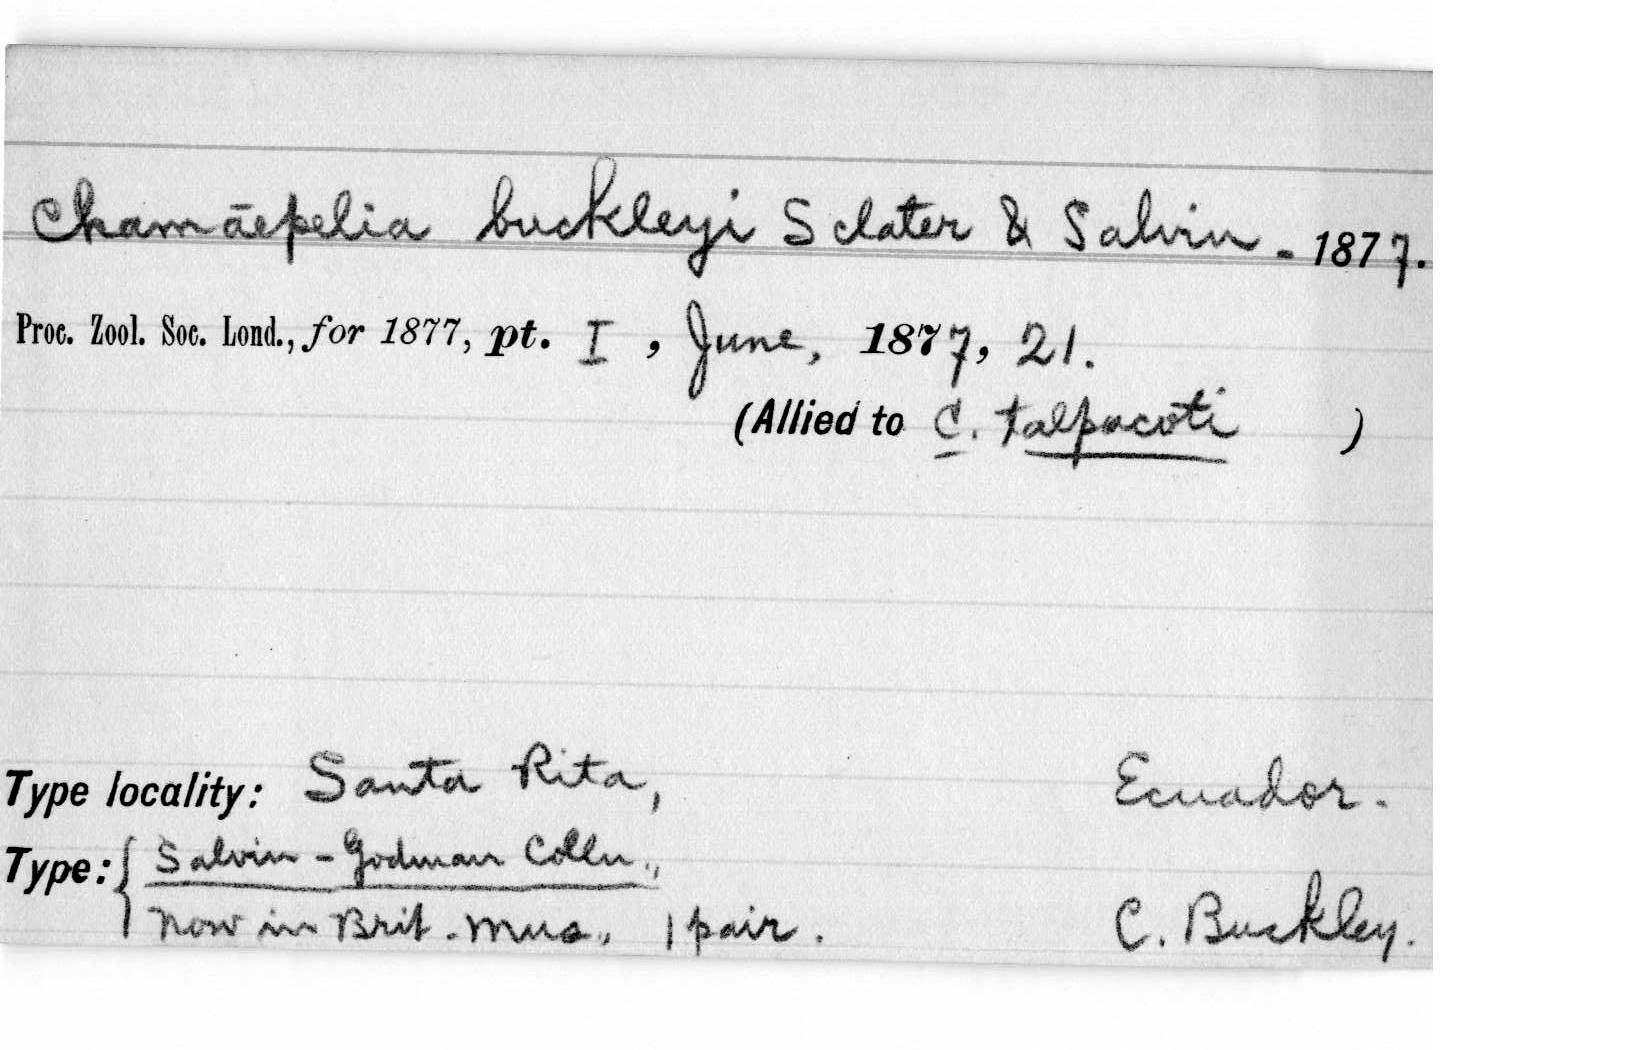 Chamāepelia buckleyi Sclater & Salvin - 1877.
Proc. Zool. Soc. Lond., for 1877, pt. I, June, 1877, 21.
(Allied to C. talpacoti )
Type locality: Santa Rita, Ecuador.
Type: { Salvin-Godman Colln.,
now in Brit. Mus., 1 pair. C. Buckley.